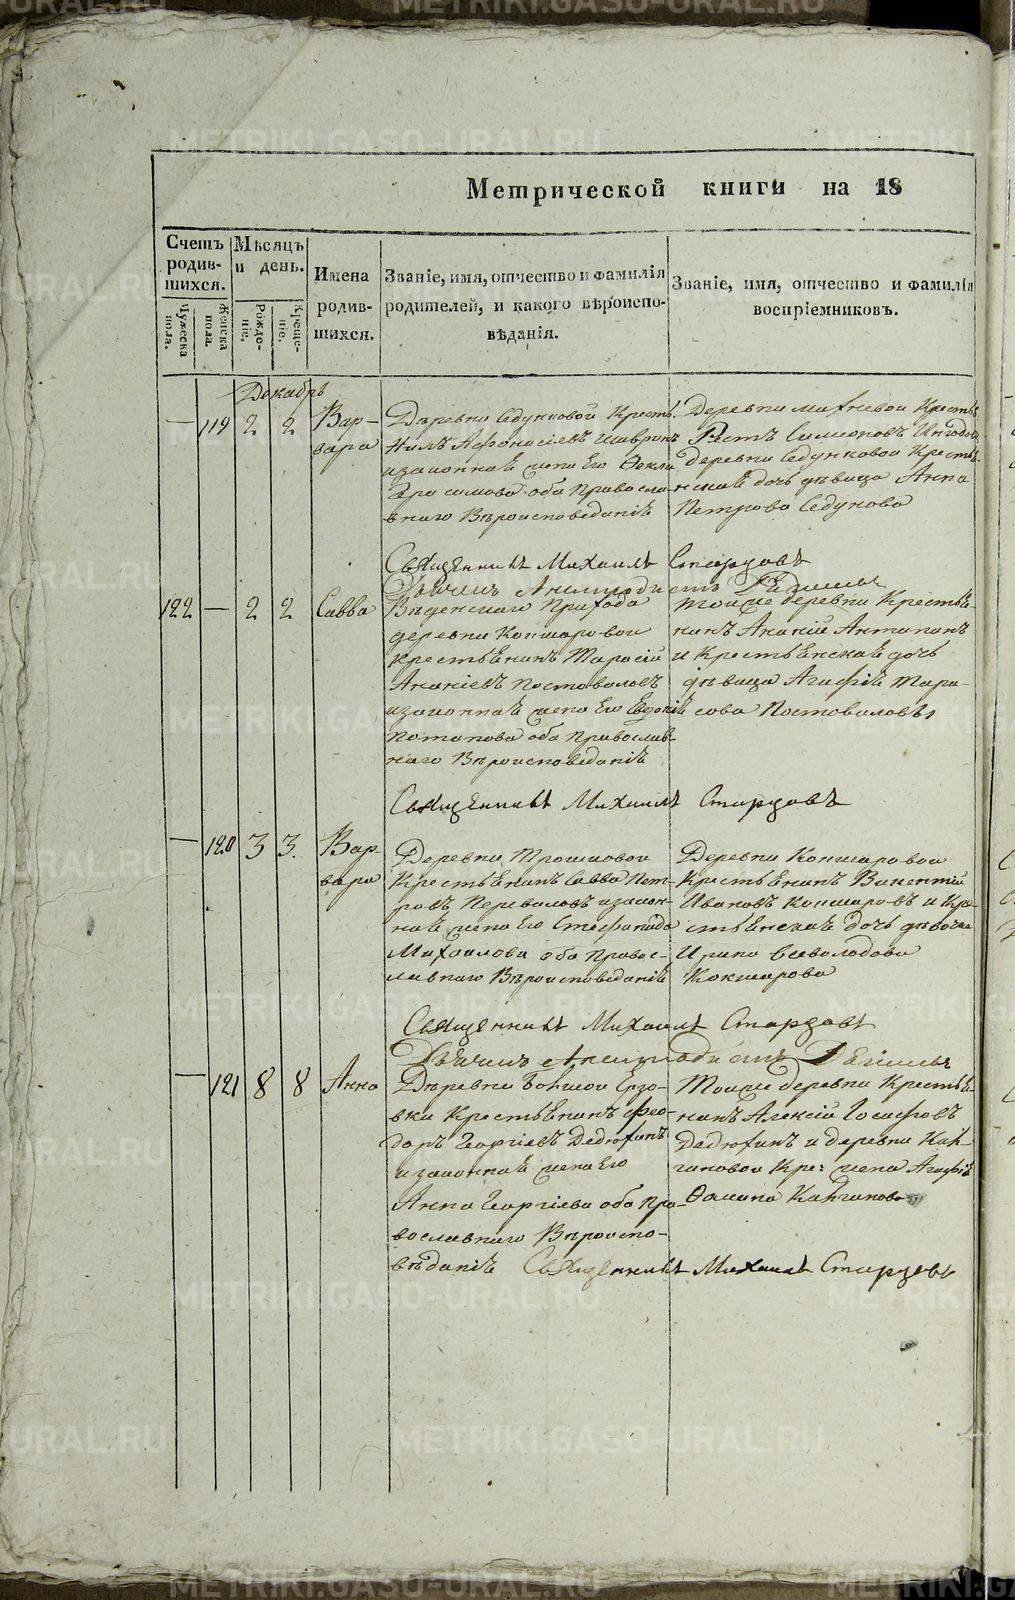 Метрической книги на 18
Счетъ родив-шихся.
Мѣсяцъ и день.
Имена родив-шихся.
Званіе, имя, отчество и фамилія родителей, и какого вѣроиспо-вѣданія.
Званіе, имя, отчество и фамилія воспріемниковъ.
Мужеска пола.
Женска пола.
Рожде-ніе.
Креще-ніе.
Декабрь
— 119 2 2 Вар-вара
Деревни Седунковой Кресть.
Нилъ Афонасіевъ
изаконнаѣ жена Его Фекла
Гра симова оба Правосла-
внаго Вѣроисповѣданіѣ
Деревни Махневой Кресть.
Симеоновъ
деревни Седунковой Кресть-
нскаѣ дочь дѣвица Анна
Петрова Седунова
Священникъ Михаилъ Старцовъ
122 — 2 2 Савва
Введенскаго Прихода
деревни Кокшаровой
крестьѣнинъ Тарасій
Ананіевъ Постоваловъ
изаконнаѣ жена Его Евдокіѣ
Потапова оба Православ-
наго Вѣроисповѣданіѣ
тойже деревни Крестьѣ-
нинъ Ананій Антипинъ
и Крестьѣнскаѣ дочь
дѣвица Агафіѣ Тара-
сова Постовалова
Священникъ Михаилъ Старцовъ
— 120 3 3. Вар-вара
Деревни Трошковой
Крестьѣнинъ Савва Пет-
ровъ Переваловъ изакон-
наѣ жена Его Стефанида
Михаилова оба Правос-
лавнаго Вѣроисповѣданіѣ
Деревни Кокшаровой
Крестьѣнинъ Викентій
Ивановъ Кокшаровъ и Кре-
стьѣнскаѣ дочь дѣвочка
Ирина Всеволодова
Кокшарова
Священникъ Михаилъ Старцовъ
— 121 8 8 Анна
Деревни Большой Ерзо-
вки Крестьѣнинъ Фео-
доръ Георгіевъ Дедюхинъ
изаконнаѣ жена Его
Анна Георгіева оба Пра-
вославнаго Вѣроиспо-
вѣданіѣ
Тойже деревни Крестьѣ-
нинъ Алексій Іосафовъ
Дедюхинъ и деревни Кай-
гановой Кре: жена Агафіѣ
Фомина Кайганова
Священникъ Михаилъ Старцовъ
METRIKI.GASO-URAL.RU